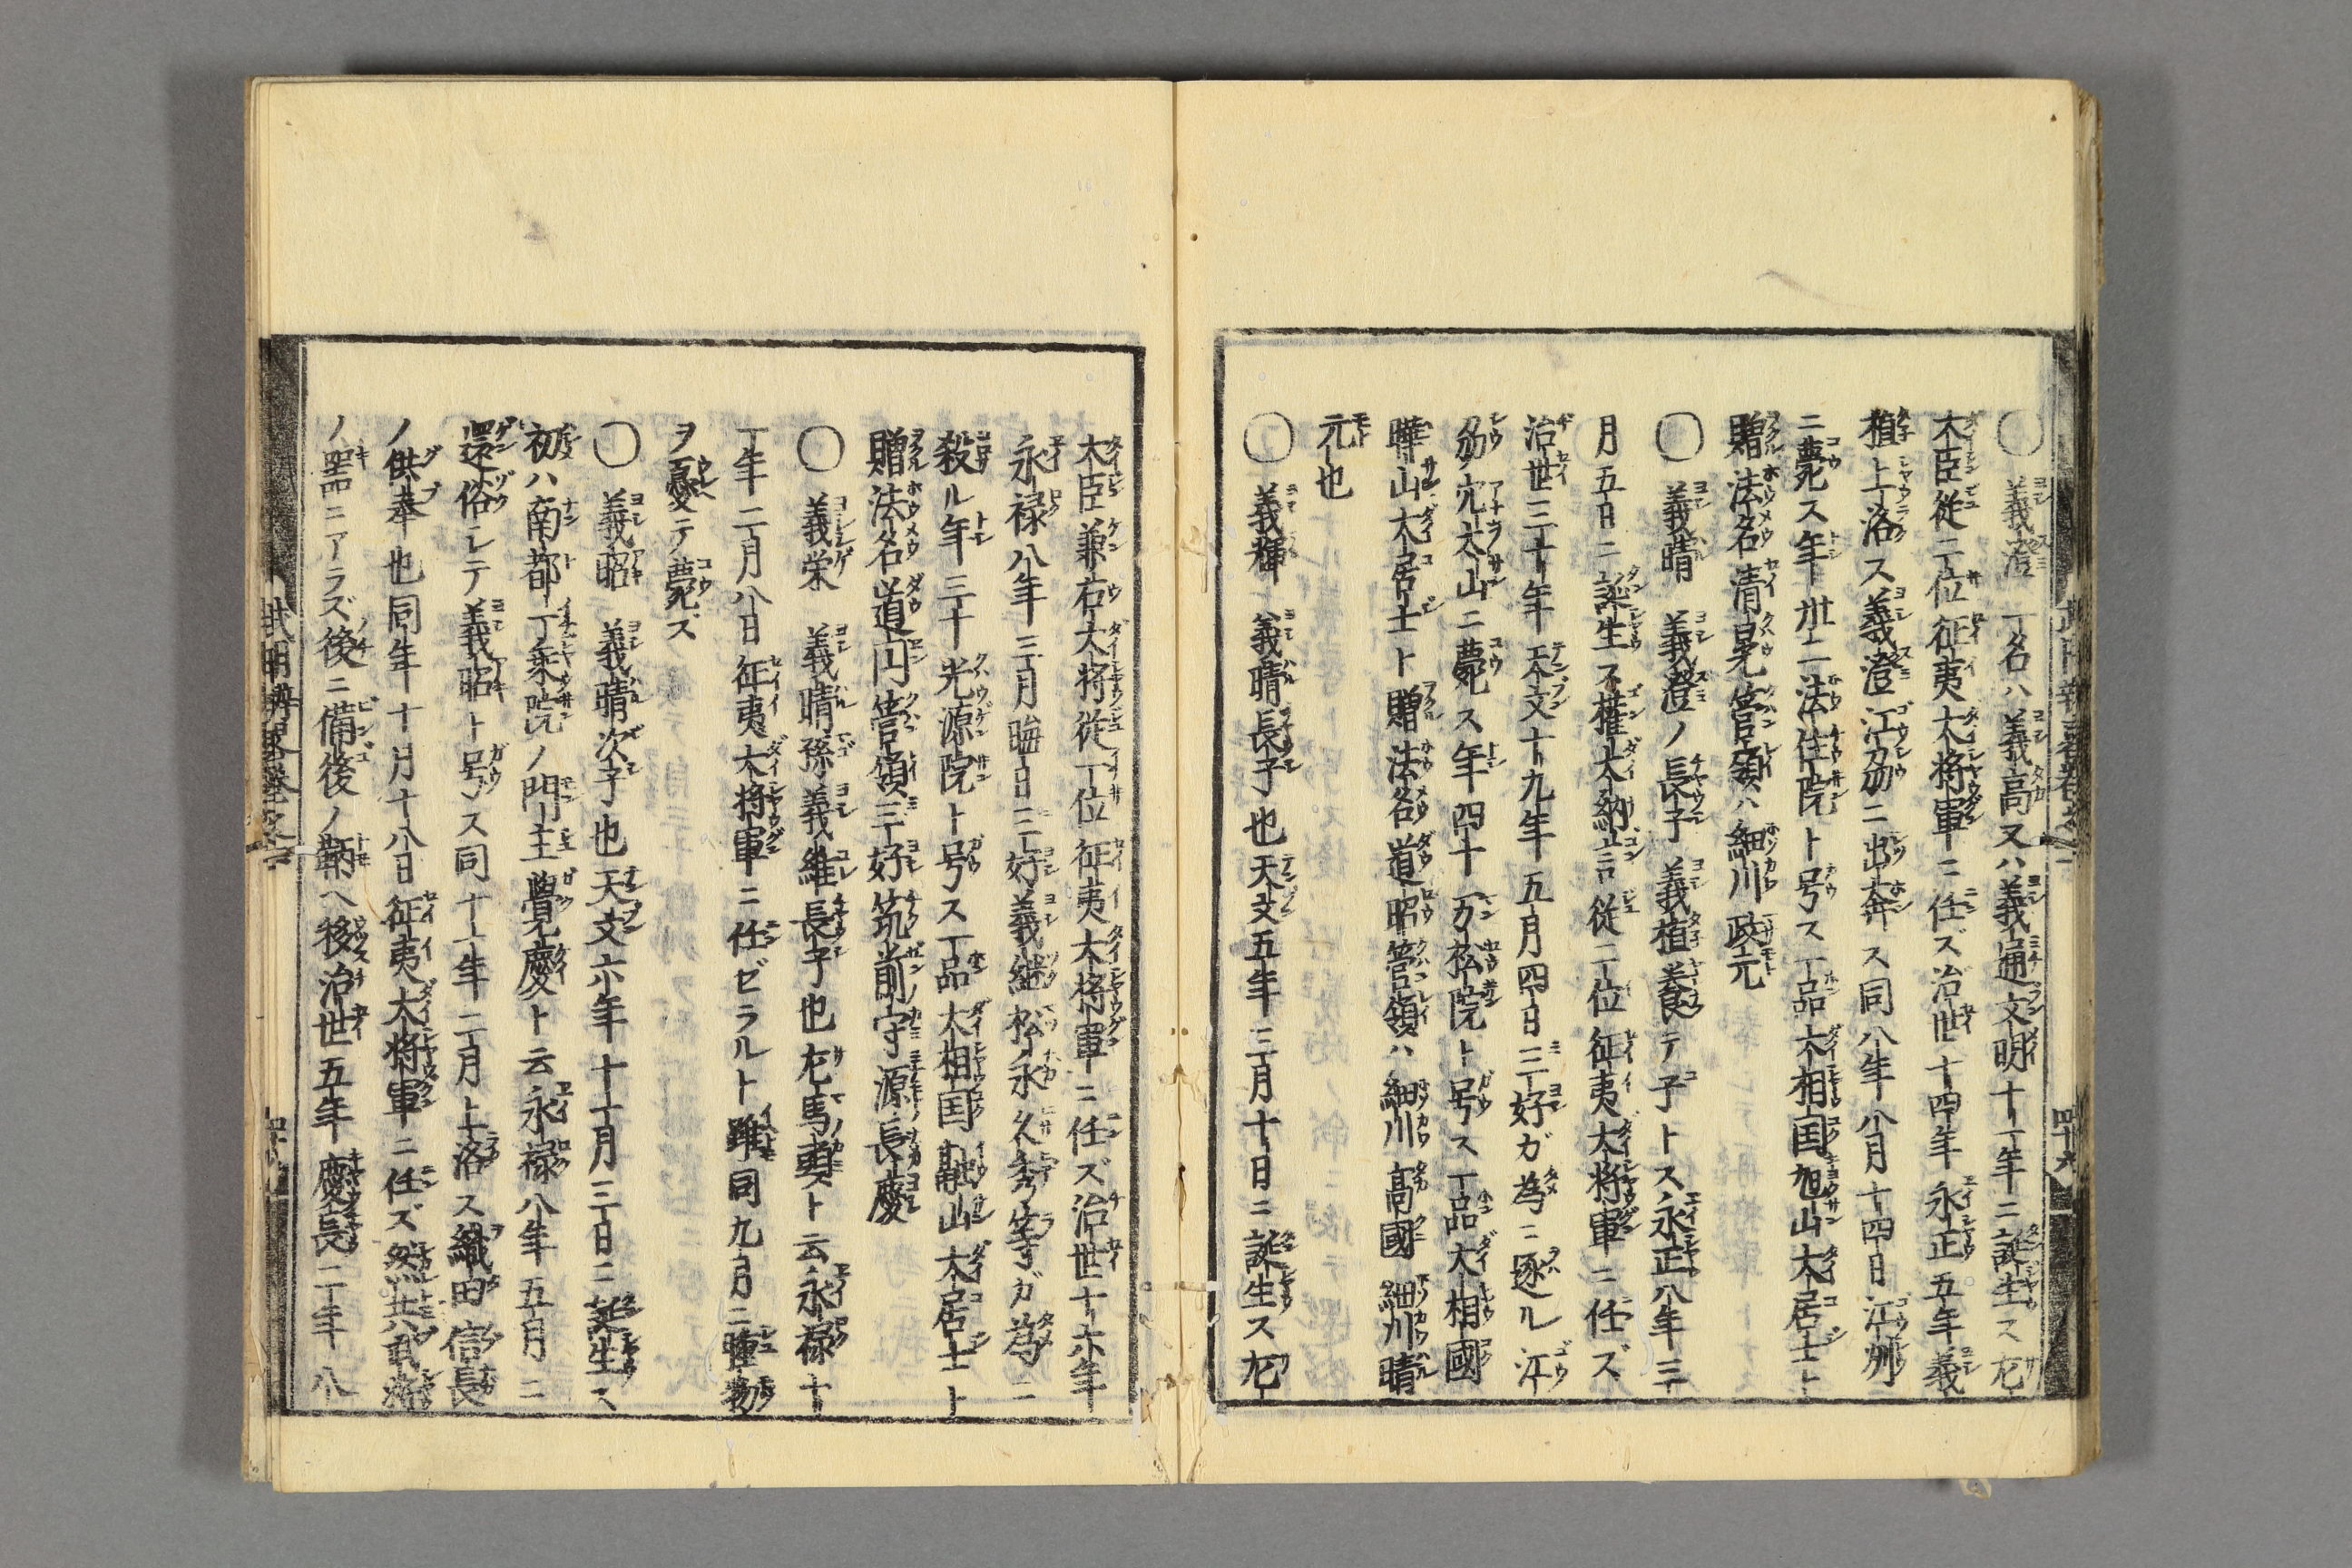 〇義澄一名ハ義高又ハ義通文明十一年ニ誕生ス左
大臣従一位征夷大将軍ニ任ズ治世十四年永正五年義
植上洛ス義澄江刕ニ出奔ス同八年八月十四日江州
ニ薨ス年卅二法住院ト号ス一品大相国旭山大居士ト
贈法名清晃管領ハ細川政元
〇義晴義澄ノ長子義植養テ子トス永正八年三
月五日ニ誕生ス権大納言従二位征夷大将軍ニ任ズ
治世三十年天文十九年五月四日三好ガ為ニ逐ル江
刕穴太山ニ薨ス年四十万松院ト号ス一品大相國
曄山大居士ト贈法名道昭管領ハ細川高國細川晴
元也
〇義輝義晴長子也天文五年三月十日ニ誕生ス左
大臣兼右大将従一位征夷大将軍ニ任ズ治世十六年
永禄八年三月晦日三好義継松永久秀等ガ為ニ
殺ル年三十光源院ト号ス一品大相国融山大居士ト
贈法名道円管領三好筑前守源長慶
〇義栄義晴孫義維長子也左馬頭ト云永禄十
一年二月八日征夷大将軍ニ任ゼラルト雖同九月ニ腫物
ヲ憂テ薨ズ
〇義昭義晴次子也天文六年十一月三日ニ誕生ス
初ハ南都一乗院ノ門主覺慶ト云永禄八年五月ニ
還俗レテ義昭ト号ス同十一年二月上洛ス織田信長
ノ供奉也同年十月十八日征夷大将軍ニ任ズ然共武将
ノ器ニアラズ後ニ備後ノ鞆ヘ移治世五年慶長二年八